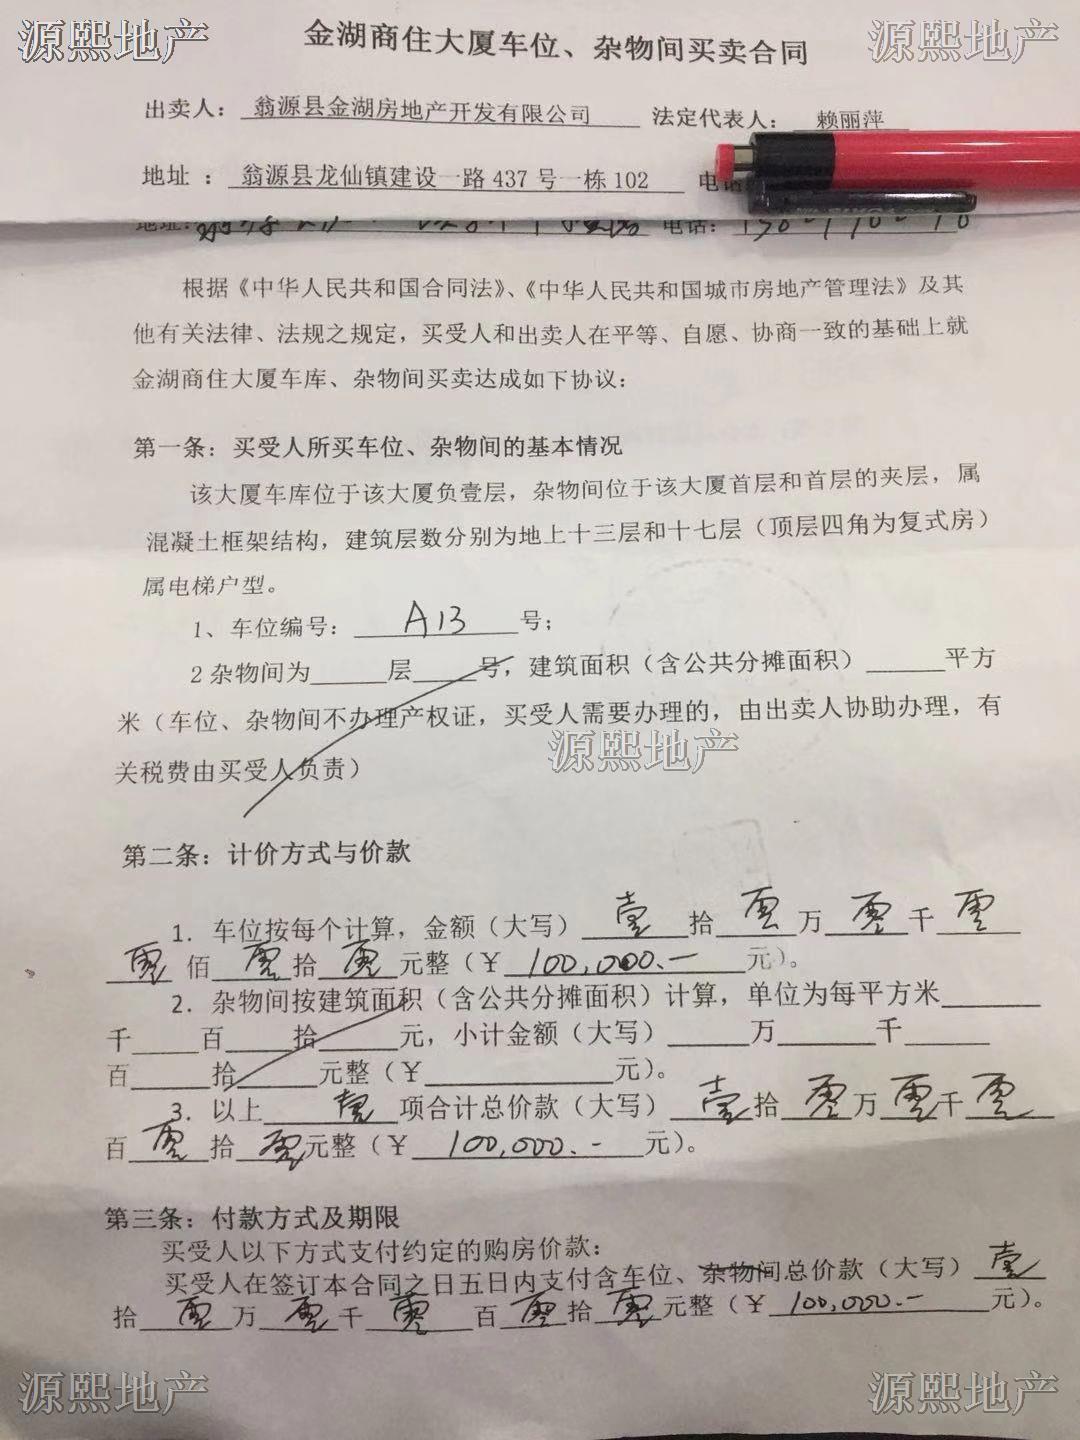 源熙地产 源熙地产
金湖商住大厦车位、杂物间买卖合同
出卖人： 翁源县金湖房地产开发有限公司 法定代表人： 赖丽萍
地址 ： 翁源县龙仙镇建设一路 437 号一栋 102 电话
地址： 电话：
根据《中华人民共和国合同法》、《中华人民共和国城市房地产管理法》及其
他有关法律、法规之规定，买受人和出卖人在平等、自愿、协商一致的基础上就
金湖商住大厦车库、杂物间买卖达成如下协议：
第一条：买受人所买车位、杂物间的基本情况
该大厦车库位于该大厦负壹层，杂物间位于该大厦首层和首层的夹层，属
混凝土框架结构，建筑层数分别为地上十三层和十七层（顶层四角为复式房）
属电梯户型。
1、车位编号： A13 号；
2 杂物间为______层_____号，建筑面积（含公共分摊面积）______平方
米（车位、杂物间不办理产权证，买受人需要办理的，由出卖人协助办理，有
关税费由买受人负责）
源熙地产
第二条：计价方式与价款
1．车位按每个计算，金额（大写） 壹 拾 零 万 零 千 零
零 佰 零 拾 零 元整（￥ 100,000.- 元）。
2．杂物间按建筑面积（含公共分摊面积）计算，单位为每平方米________
千_____百_____拾______元，小计金额（大写）______万_______千______
百______拾______元整（￥______________元）。
3．以上 壹 项合计总价款（大写） 壹 拾 零 万 零 千 零
百 零 拾 零 元整（￥ 100,000.- 元）。
第三条：付款方式及期限
买受人以下方式支付约定的购房价款：
买受人在签订本合同之日五日内支付含车位、杂物间总价款（大写） 壹
拾 零 万 零 千 零 百 零 拾 零 元整（￥ 100,000.- 元）。
源熙地产 源熙地产